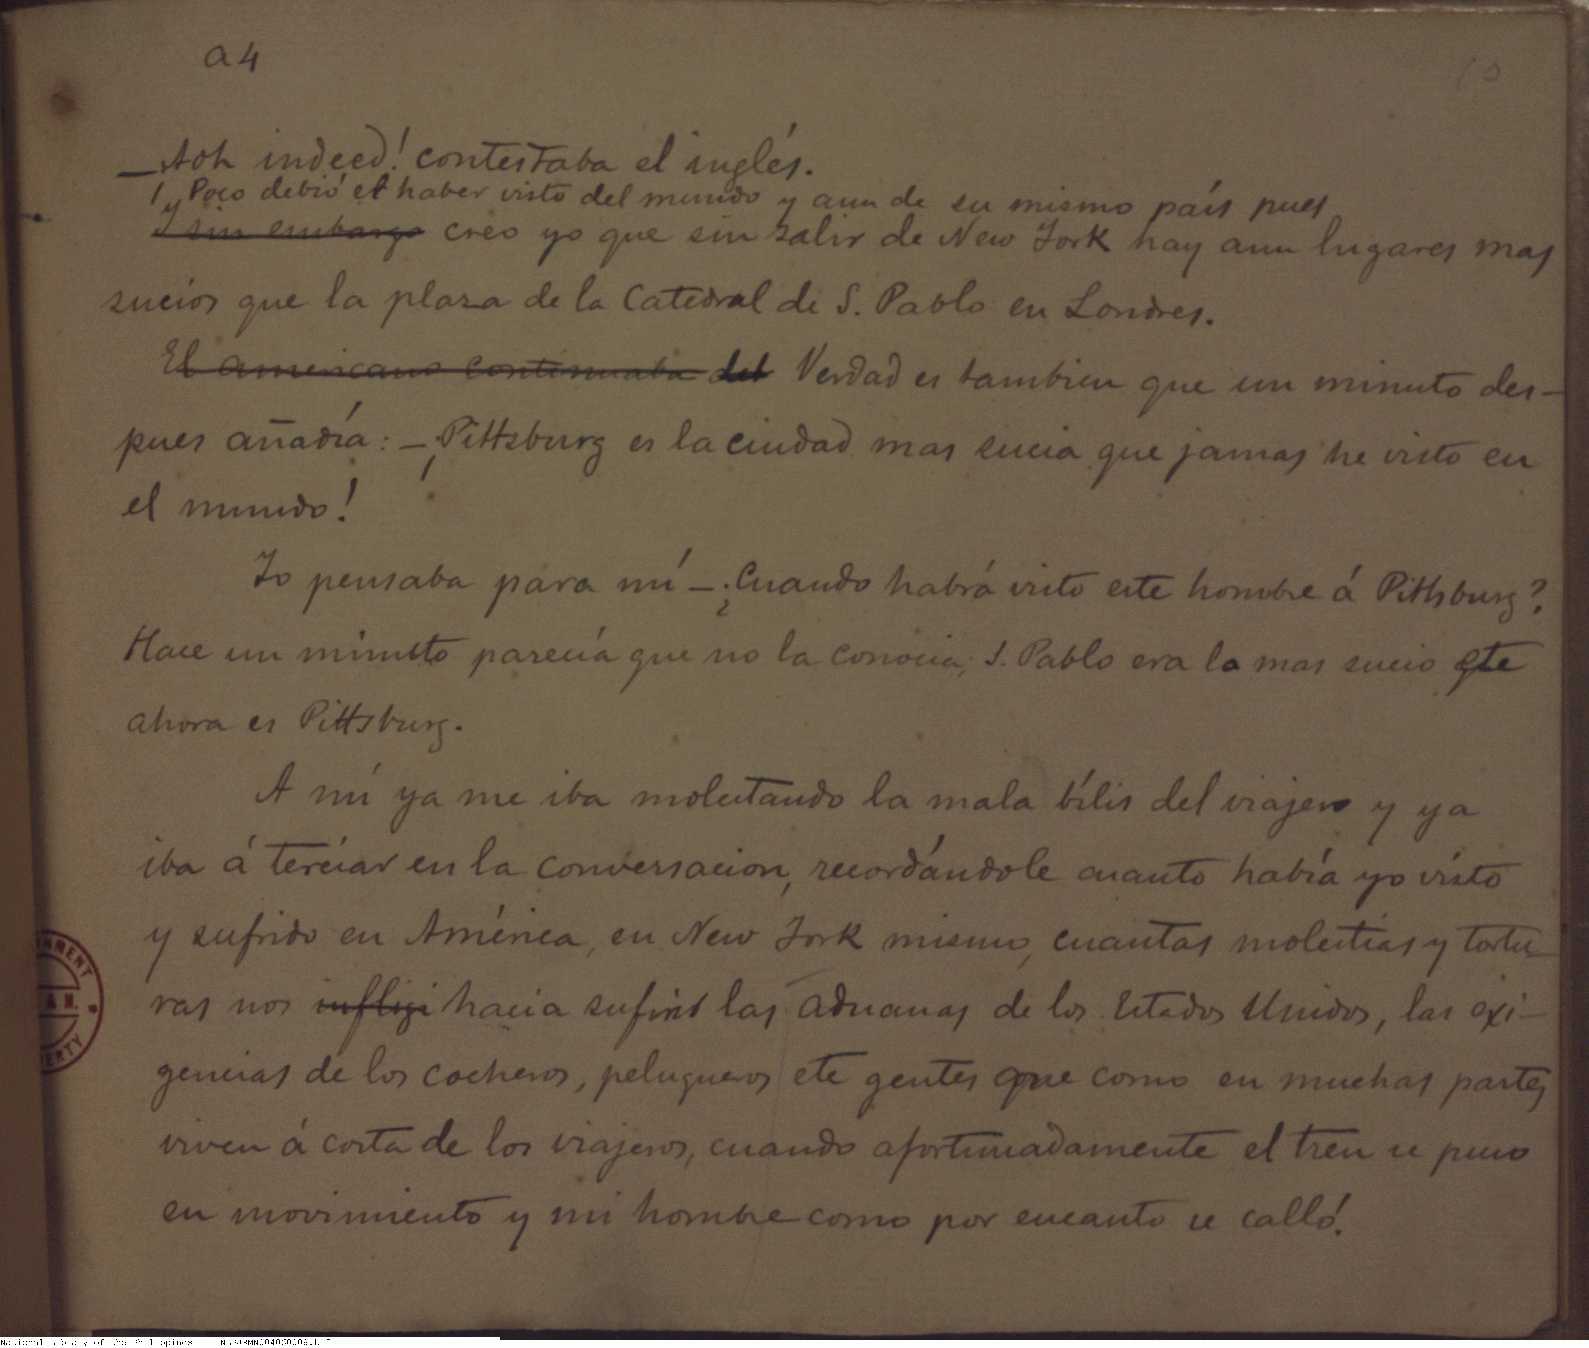 a 4
— Aoh indeed! contestaba el inglés.
y Poco debió el haber visto del mundo y aun de su mismo país pues
Y sin embargo creo yo que sin salir de New York hay aun lugares mas
sucios que la plaza de la Catedral de S. Pablo en Londres.
El americano continuaba del Verdad es tambien que un minuto des-
pues añadía: — ¡Pittsburg es la ciudad mas sucia que jamas he visto en
el mundo!
Yo pensaba para mí — ¿Cuando habrá visto este hombre á Pittsburg?
Hace un minuto parecía que no la conocia; S. Pablo era lo mas sucio qte
ahora es Pittsburg.
A mí ya me iba molestando la mala bílis del viajero y ya
iba á terciar en la conversacion, recordándole cuanto había yo visto
y sufrido en América, en New York mismo, cuantas molestias y tortu-
ras nos infligi hacia sufrir las aduanas de los Estados Unidos, las exi-
gencias de los cocheros, peluqueros ete gentes que como en muchas partes
viven á costa de los viajeros, cuando afortunadamente el tren se puso
en movimiento y mi hombre como por encanto se calló.
National Library of the Philippines